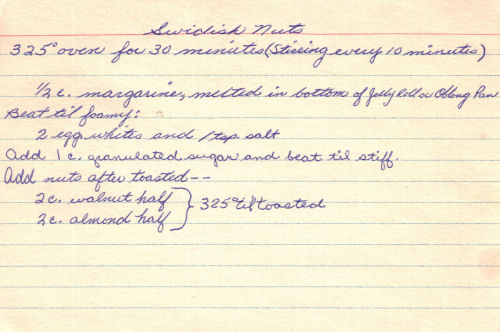 Swidish Nuts
325° oven for 30 minutes (Stirring every 10 minutes)
1/2 c. margarine, melted in bottom of Jelly Roll or Oblong Pan
Beat til foamy:
2 egg whites and 1 tsp. salt
Add 1 c. granulated sugar and beat til stiff.
Add nuts after toasted --
2 c. walnut half } 325° til toasted
2 c. almond half